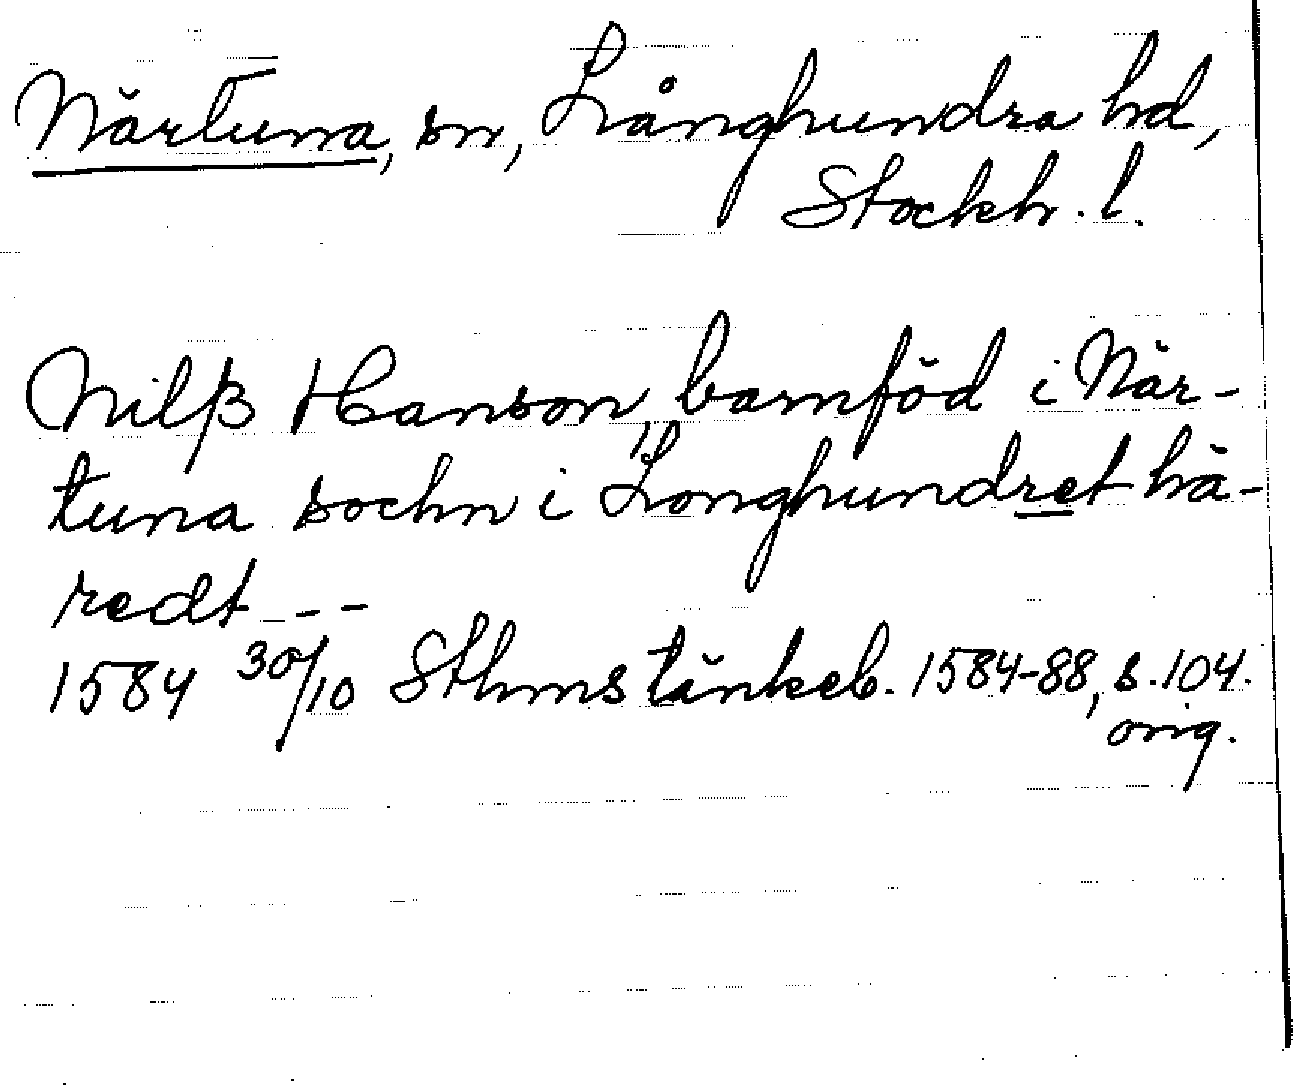 Närtuna, sn, Långhundra hd,
Stockh. l.
Nilß Hanson, barnföd i När-
tuna sochn i Longhundret hä-
redt _ - -
1584 30/10 Sthms tänkeb. 1584-88, s. 104.
orig.